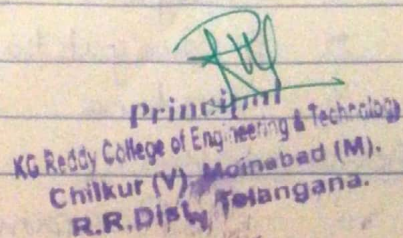 Principal
KG Reddy College of Engineering & Technology
Chilkur (V), Moinabad (M).
R.R.Dist, Telangana.